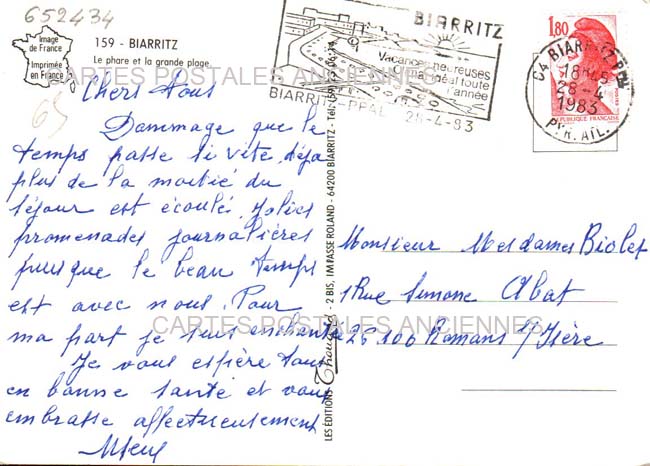 652434
Image
de France
Imprimée
en France
159 - BIARRITZ
Le phare et la grande plage.
65
Chers Tous
Dammage que le
temps passe si vite déja
plus de la moitié du
séjour est écoulé. Jolies
promenades journalières
puisque le beau temps
est avec nous. Pour
ma part je suis enchantée
Je vous espère tous
en bonne santé et vous
embrasse affectueusement
CARTES POSTALES ANCIENNES
CARTES POSTALES ANCIENNES
LES ÉDITIONS Thouand - 2 BIS, IMPASSE ROLAND - 64200 BIARRITZ - Tél. (59)
BIARRITZ
Vacances heureuses
climat idéal toute
l'année
BIARRITZ-PPAL 28-4-83
1,80
RÉPUBLIQUE FRANÇAISE
64 BIARRITZ PPAL
18H15
28-4
1983
PYR. ATL.
Monsieur Mesdames Biolet
1 Rue Simone Abat
26100 Romans s/Isère